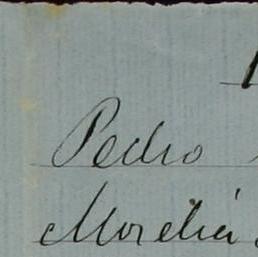 Pedro
Morelia